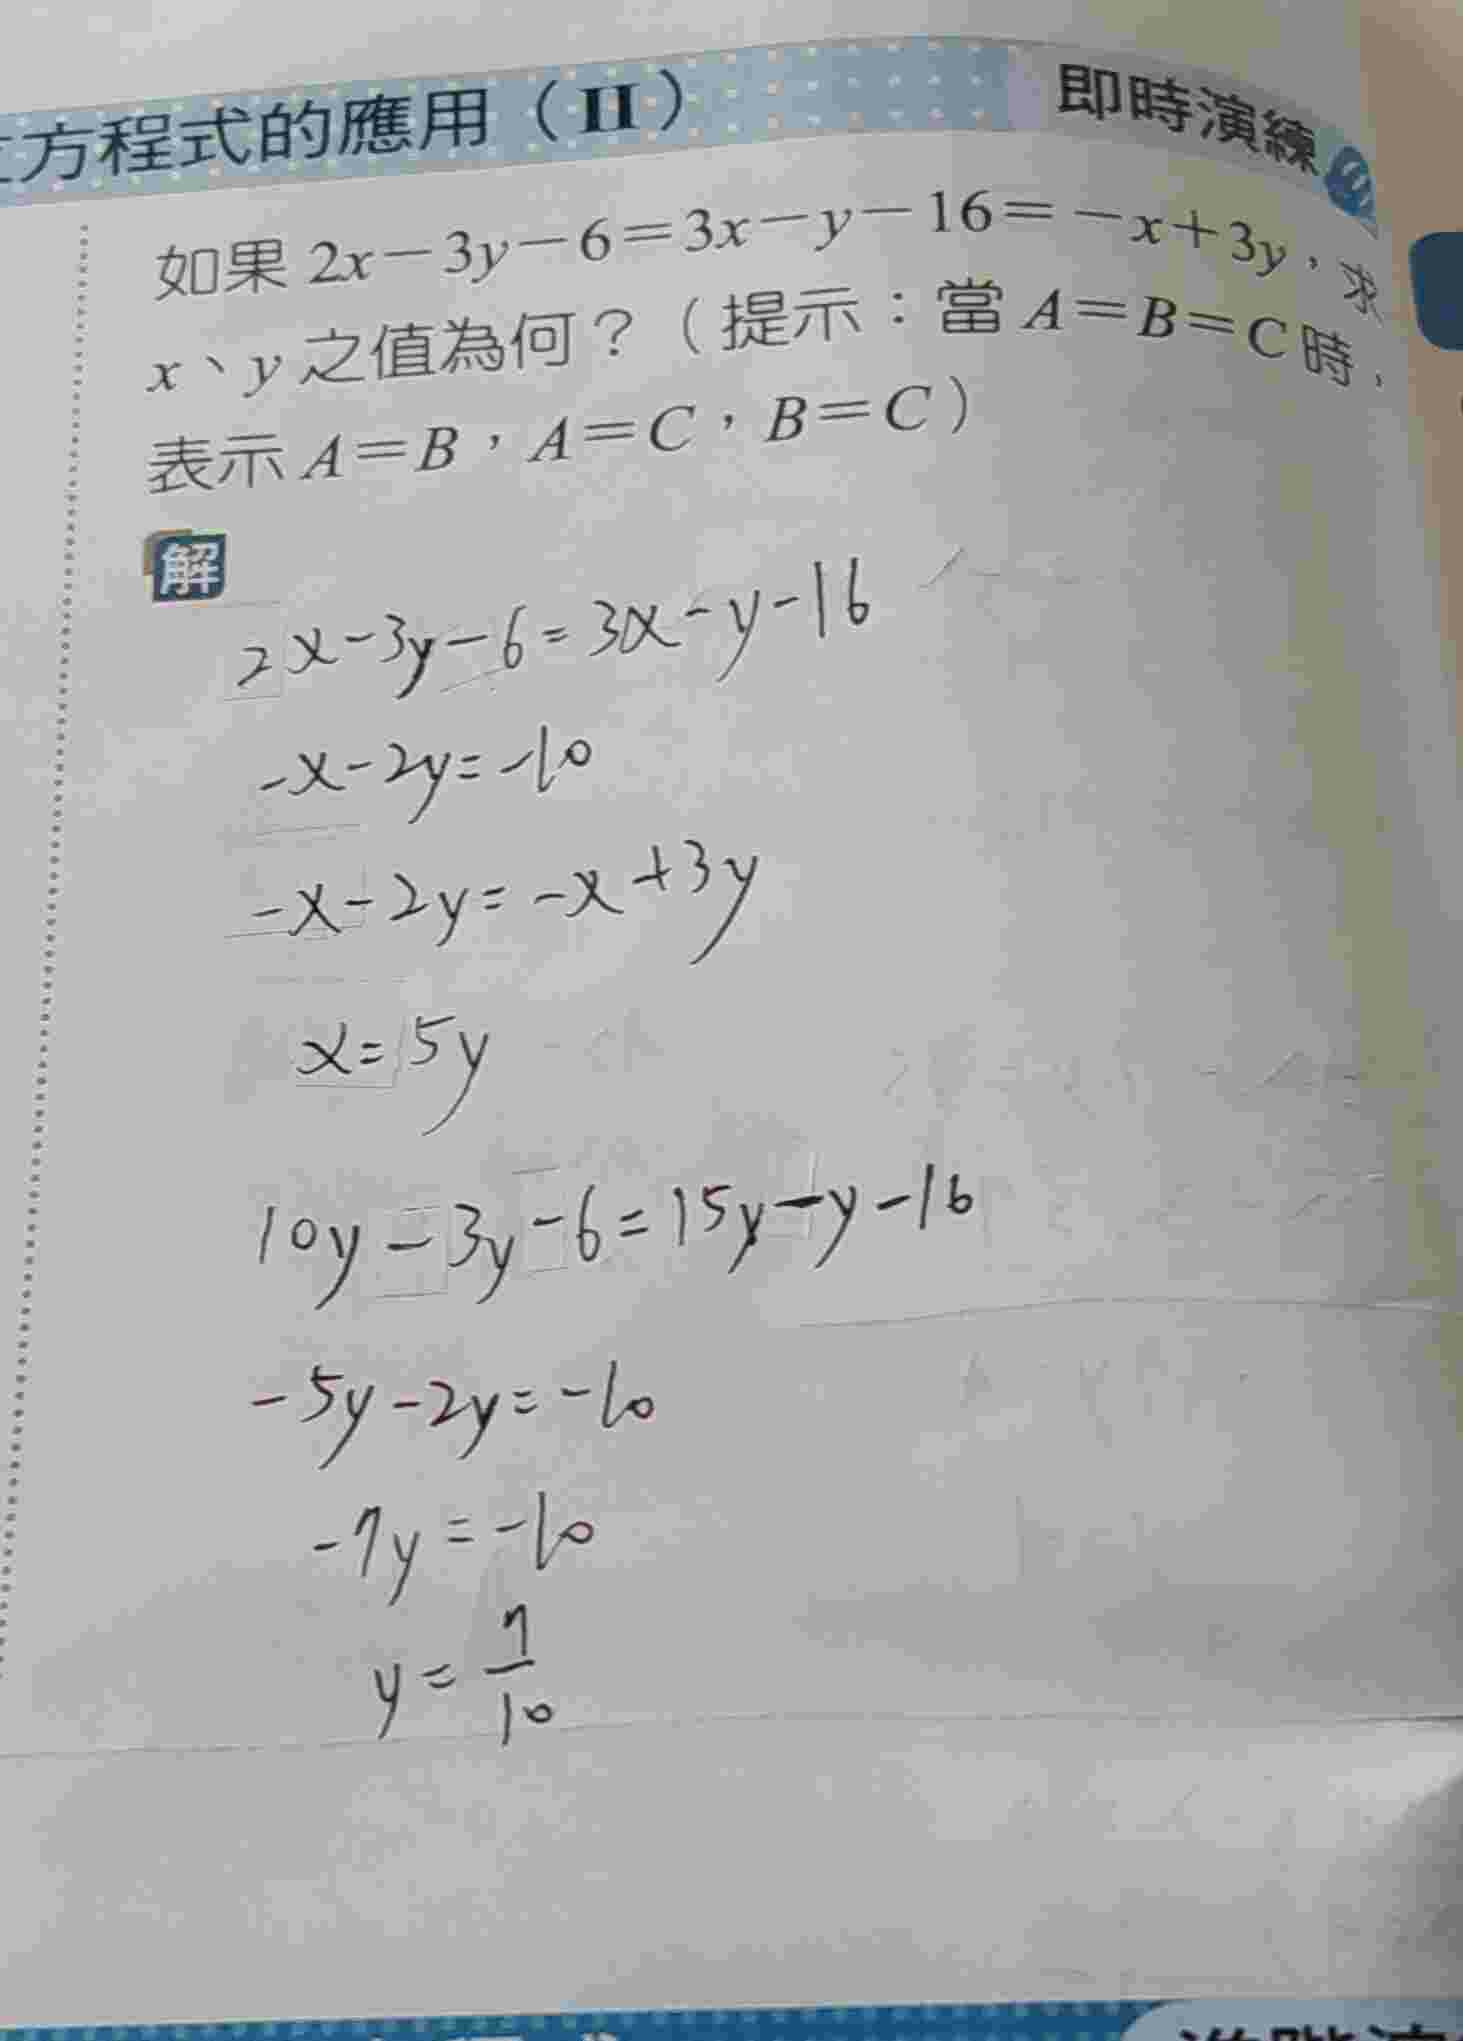 方程式的應用（II）
即時演練
如果 2x－3y－6＝3x－y－16＝－x＋3y，求
x、y 之值為何？（提示：當 A＝B＝C 時，
表示 A＝B，A＝C，B＝C）
解
2x-3y-6=3x-y-16
-x-2y=-10
-x-2y=-x+3y
x=5y
10y-3y-6=15y-y-16
-5y-2y=-10
-7y=-10
y=7/10